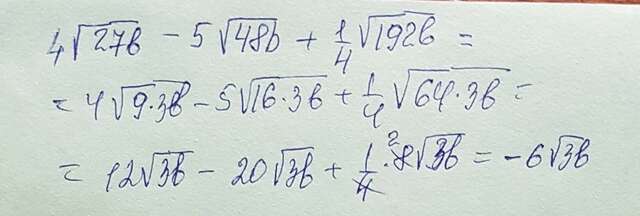 4√27b − 5√48b + 1/4 √192b =
= 4√9·3b − 5√16·3b + 1/4 √64·3b =
= 12√3b − 20√3b + 1/4 · 8² √3b = −6√3b